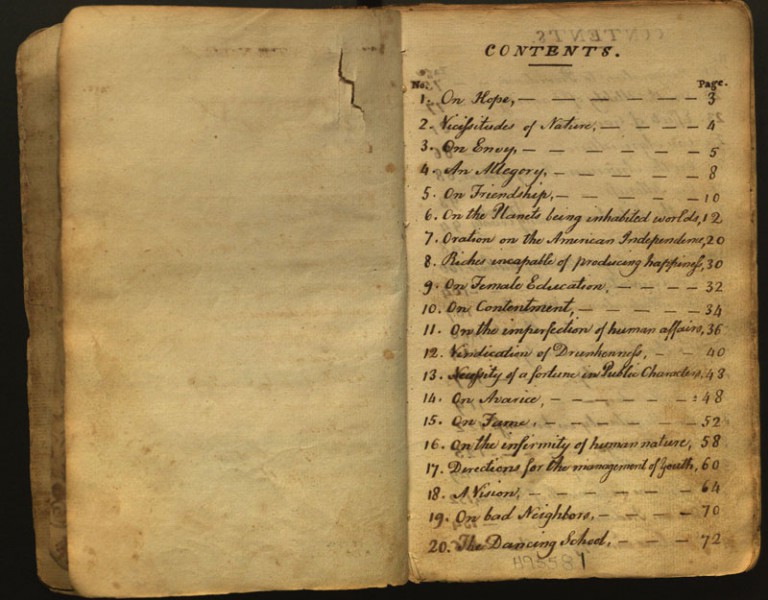 CONTENTS.
No. Page.
1. On Hope, — — — — — — 3
2. Vicissitudes of Nature, — — — — 4
3. On Envy, — — — — — — 5
4. An Allegory, — — — — — 8
5. On Friendship, — — — — — 10
6. On the Planets being inhabited worlds, 12
7. Oration on the American Independence, 20
8. Riches incapable of producing happiness, 30
9. On Female Education, — — — — 32
10. On Contentment, — — — — — 34
11. On the imperfection of human affairs, 36
12. Vindication of Drunkenness, — — 40
13. Necessity of a fortune in Public Characters, 43
14. On Avarice, — — — — — : 48
15. On Fame, — — — — — — 52
16. On the infirmity of human nature, 58
17. Directions for the management of Youth, 60
18. A Vision, — — — — — — 64
19. On bad Neighbors, — — — — 70
20. The Dancing School, — — — 72